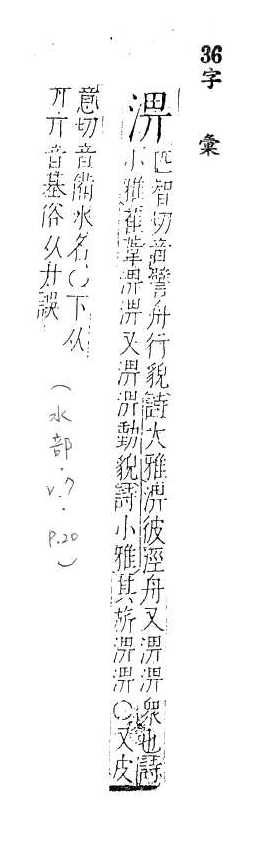 36字彙
淠
匹智切音譬舟行貌詩大雅淠彼涇舟又淠淠衆也詩
小雅萑葦淠淠又淠淠動貌詩小雅其旂淠淠○又皮
意切音備水名○下从
丌丌音基俗从廾誤
(水部.v.7.p.20)